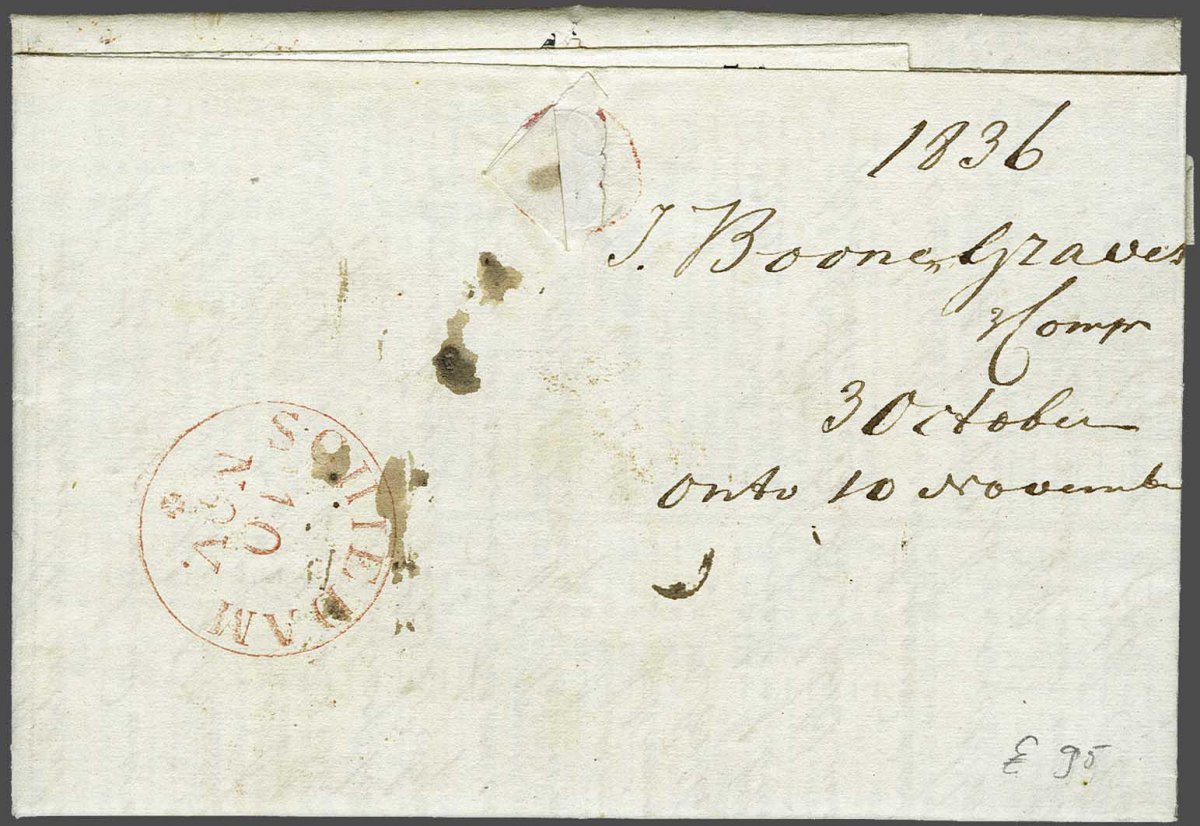 1836
J. Boone, Graves
& Comp
3 October
onto 10 November
SCHIEDAM
10
NOV.
£ 95